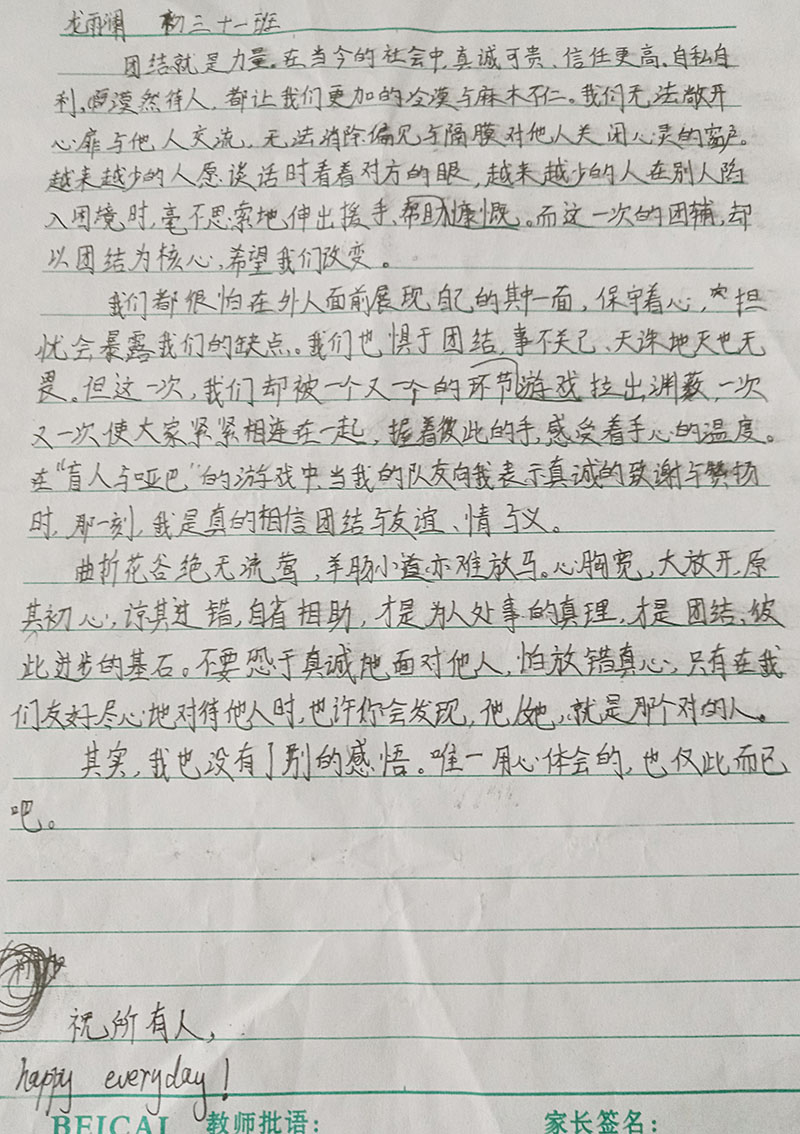 龙雨澜 初三十一班
团结就是力量。在当今的社会中,真诚可贵、信任更高。自私自
利,漠然待人,都让我们更加的冷漠与麻木不仁。我们无法敞开
心扉与他人交流,无法消除偏见与隔膜对他人关闭心灵的窗户。
越来越少的人愿谈话时看着对方的眼,越来越少的人在别人陷
入困境时,毫不思索地伸出援手、帮助慷慨。而这一次的团辅,却
以团结为核心,希望我们改变。
我们都很怕在外人面前展现自己的其中一面,保守着心,担
忧会暴露我们的缺点。我们也惧于团结,事不关己、天诛地灭也无
畏。但这一次,我们却被一个又一个的环节游戏拉出渊薮,一次
又一次使大家紧紧相连在一起,握着彼此的手,感受着手心的温度。
在“盲人与哑巴”的游戏中,当我的队友向我表示真诚的致谢与赞扬
时,那一刻,我是真的相信团结与友谊、情与义。
曲折花谷绝无流莺,羊肠小道亦难放马。心胸宽,大放开,原
其初心,谅其过错,自省相助,才是为人处事的真理,才是团结、彼
此进步的基石。不要恐于真诚地面对他人,怕放错真心,只有在我
们友好尽心地对待他人时,也许你会发现,他/她,就是那个对的人。
其实,我也没有别的感悟。唯一用心体会的,也仅此而已
吧。
祝所有人,
happy everyday!
BEICAI 教师批语: 家长签名: